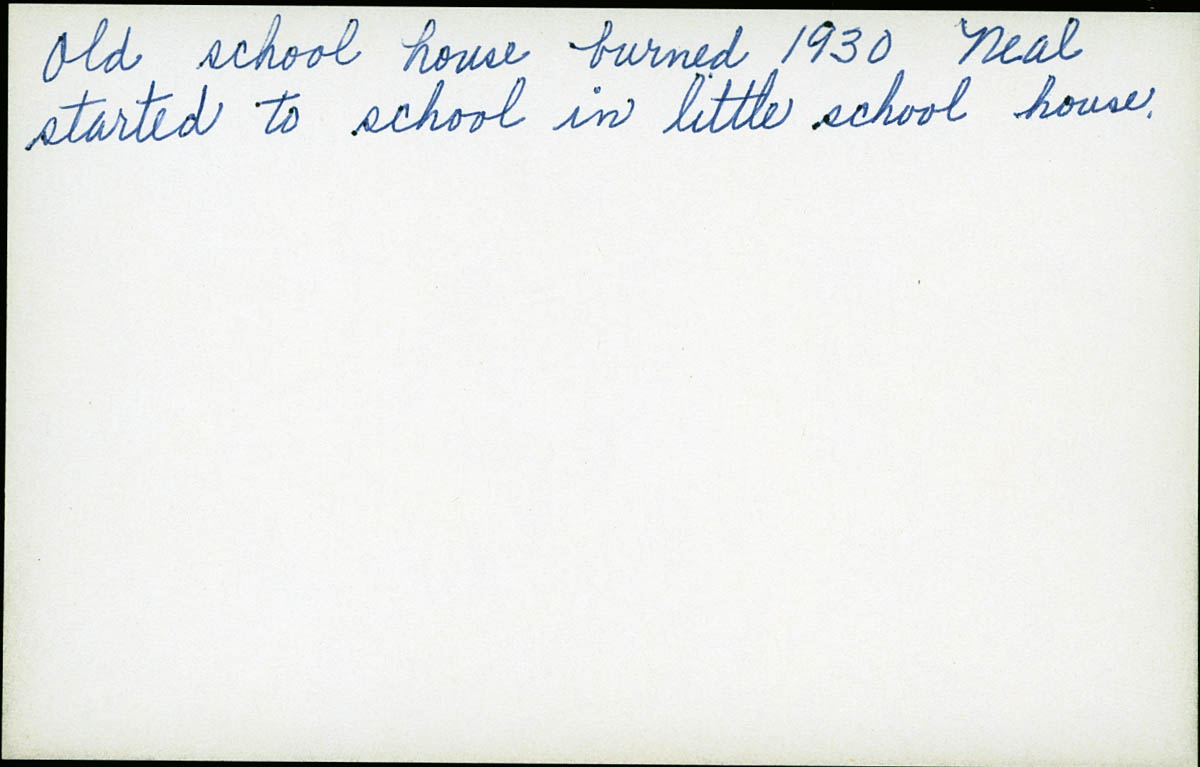 Old school house burned 1930 Neal
started to school in little school house.